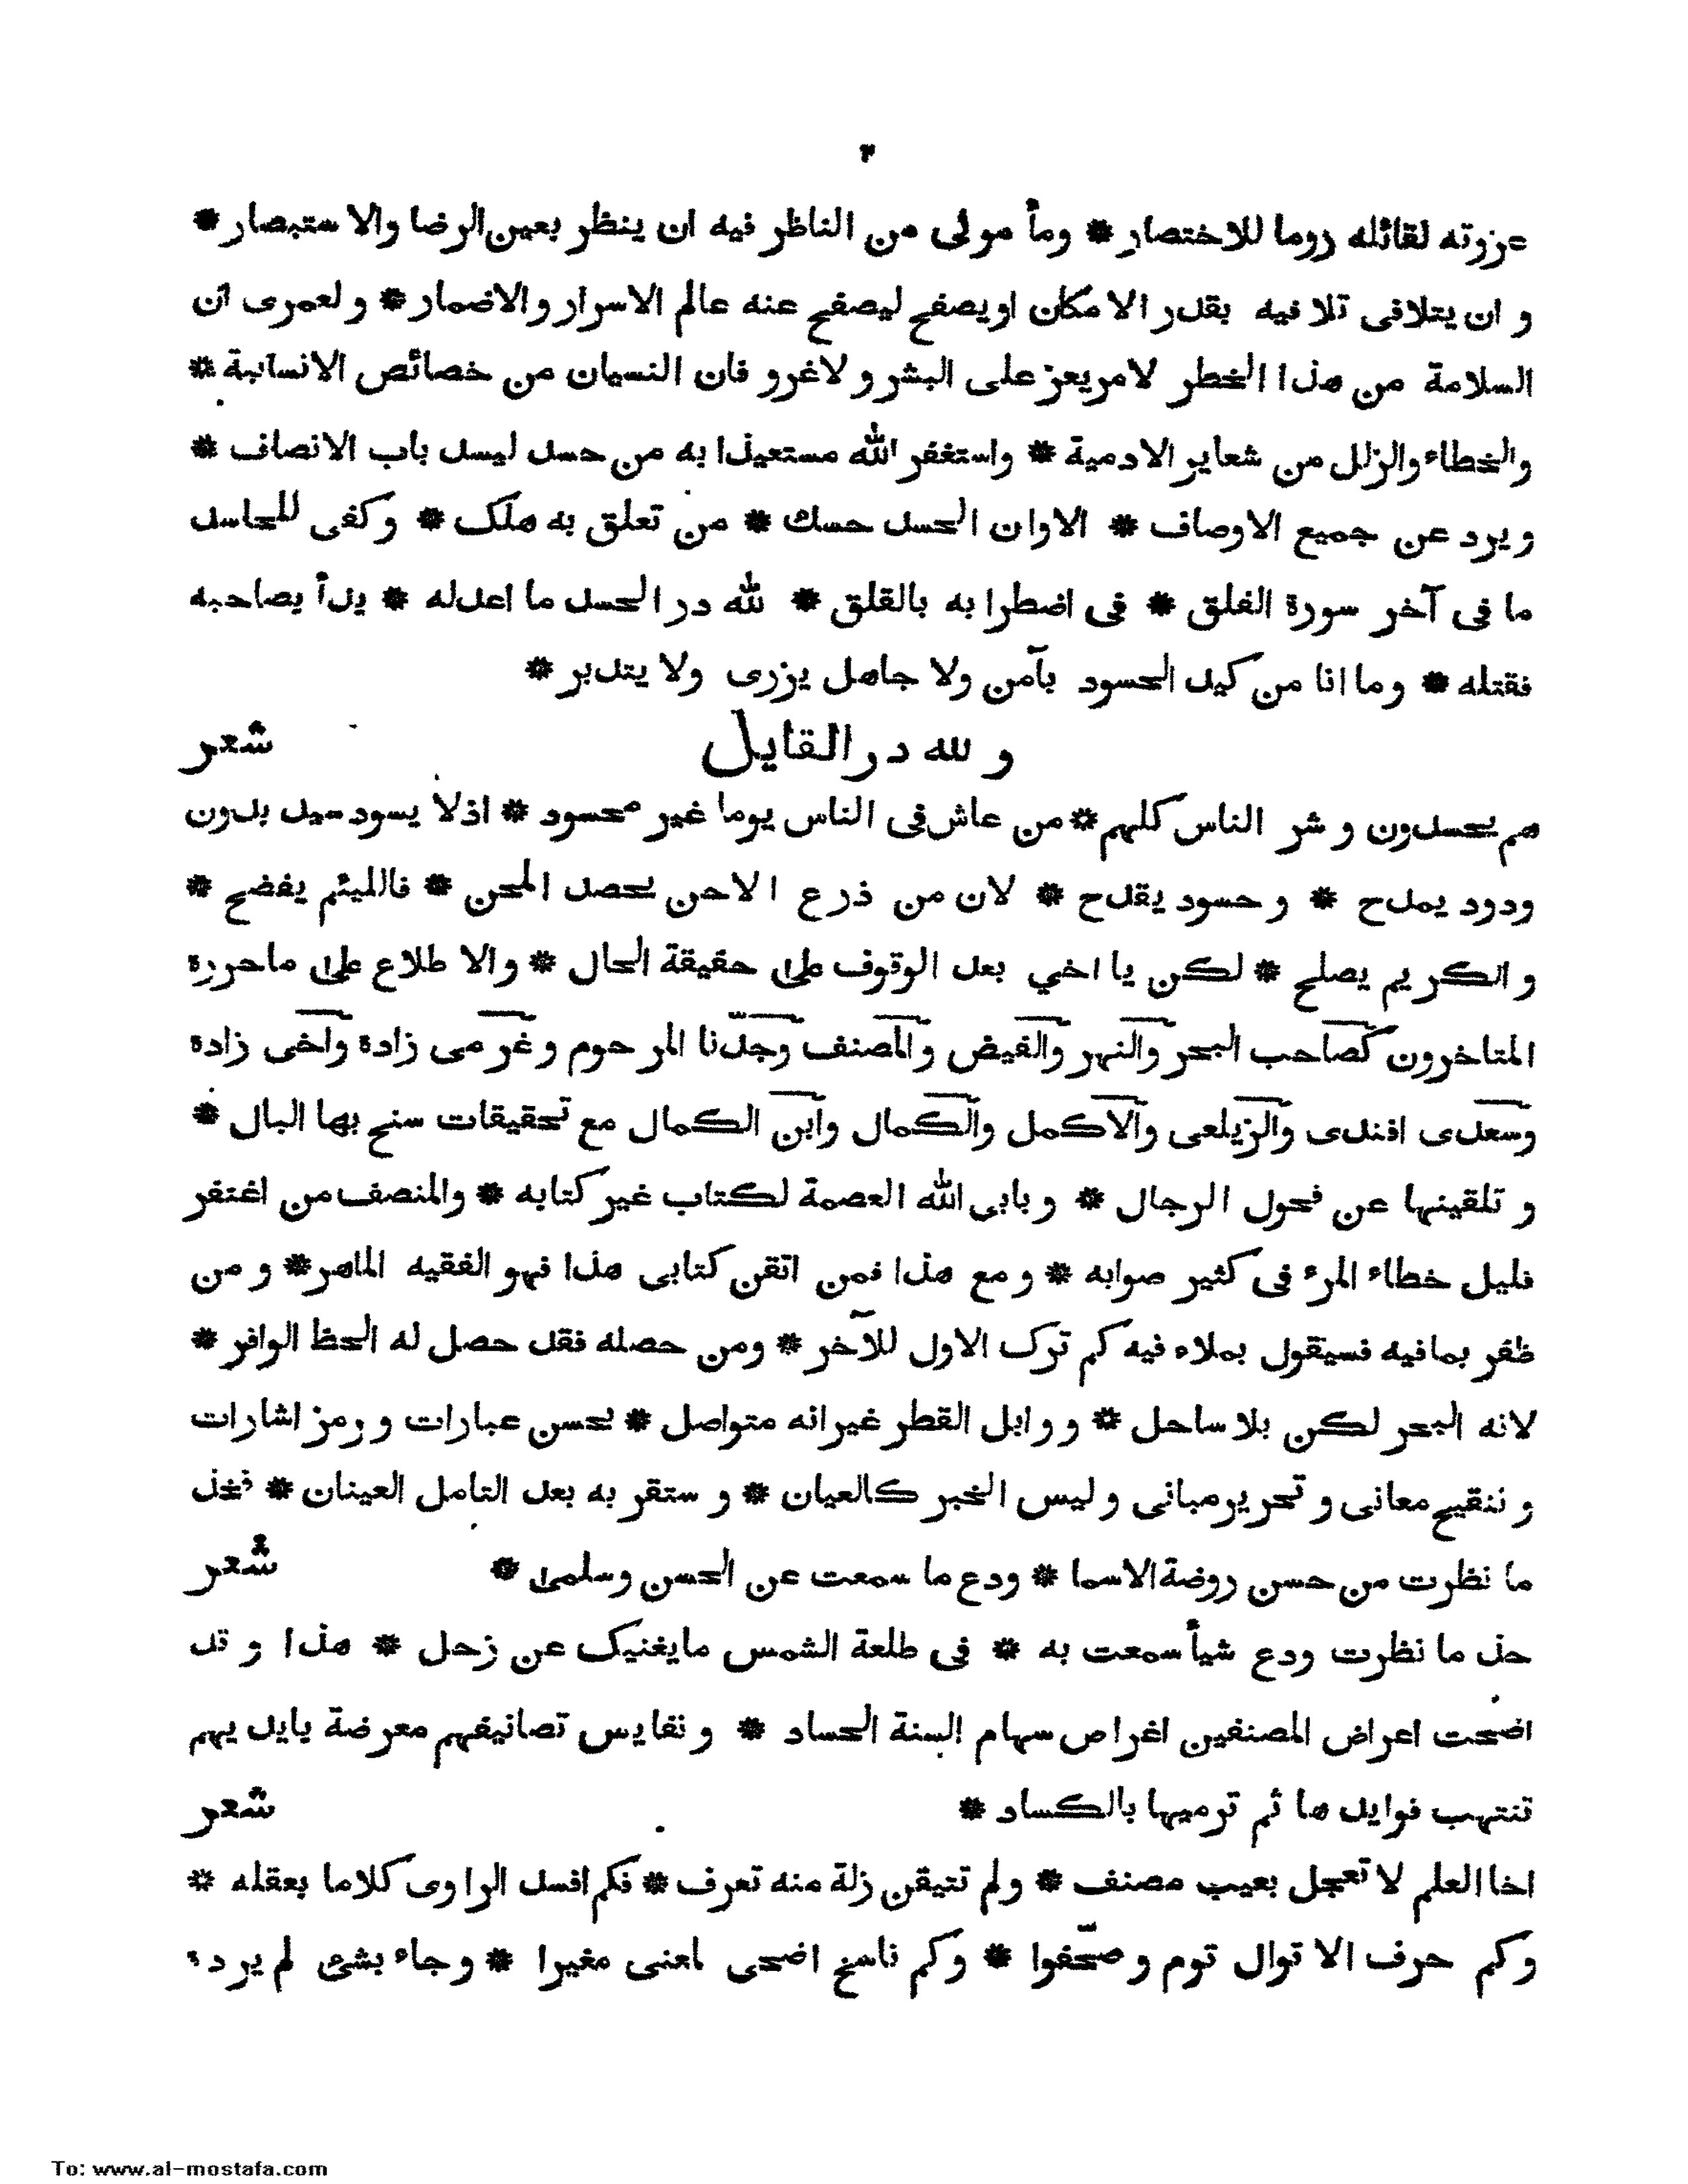 ٣
عزوته لقائله روما للاختصار * ومأ مولى من الناظر فيه ان ينظر بعين الرضا والاستبصار *
و ان يتلافى تلافيه بقدر الامكان اويصفح ليصفح عنه عالم الاسرار والاضمار * ولعمرى ان
السلامة من هذا الخطر لامريعز على البشر و لاغرو فان النسيان من خصائص الانسانية *
والخطاء والزلل من شعاير الادمية * واستغفر الله مستعيذا به من حسد ليسد باب الانصاف *
و يرد عن جميع الاوصاف * الاوان الحسد حسك * من تعلق به هلك * وكفى للحاسد
ما فى آخر سورة الفلق * فى اضطرابه بالقلق * لله در الحسد ما اعدله * بدأ بصاحبه
فقتله * وما انا من كيد الحسود بآمن ولا جاهل يزرى ولا يتدبر *
و لله در القايل شعر
هم يحسدون و شر الناس كلهم * من عاش فى الناس يوما غير محسود * اذلا يسود سيد بدون
ودود يمدح * و حسود يقدح * لان من ذرع الاحن يحصد المحن * فاللئيم يفضح *
و الكريم يصلح * لكن يا اخي بعد الوقوف على حقيقة الحال * والاطلاع على ماحررة
المتاخرون كصاحب البحر والنهر والفيض والمصنف وجدّنا المرحوم وغر مى زادة واخى زادة
وسعدى افندى والزيلعى والاكمل والكمال وابن الكمال مع تحقيقات سنح بها البال *
و تلقينها عن فحول الرجال * و يابى الله العصمة لكتاب غير كتابه * والمنصف من اغتفر
قليل خطاء المرء فى كثير صوابه * و مع هذا فمن اتقن كتابى هذا فهو الفقيه الماهر * و من
ظفر بمافيه فسيقول بملاء فيه كم ترك الاول للآخر * ومن حصله فقد حصل له الحظ الوافر *
لانه البحر لكن بلا ساحل * و وابل القطر غيرانه متواصل * بحسن عبارات و رمز اشارات
و تنقيح معانى و تحرير مبانى و ليس الخبر كالعيان * و ستقر به بعد التامل العينان * فخذ
ما نظرت من حسن روضة الاسما * ودع ما سمعت عن الحسن وسلمى * شعر
خذ ما نظرت ودع شيأ سمعت به * فى طلعة الشمس مايغنيك عن زحل * هذا و قد
اضحت اعراض المصنفين اغراض سهام السنة الحساد * و نفايس تصانيفهم معرضة بايد يهم
تنتهب فوايد ها ثم ترميها بالكساد * شعر
اخا العلم لا تعجل بعيب مصنف * و لم تتيقن زلة منه تعرف * فكم افسد الراوى كلاما بعقله *
وكم حرف الاقوال قوم و صحّفوا * وكم ناسخ اضحى لمعنى مغيرا * و جاء بشئ لم يرده
To: www.al-mostafa.com